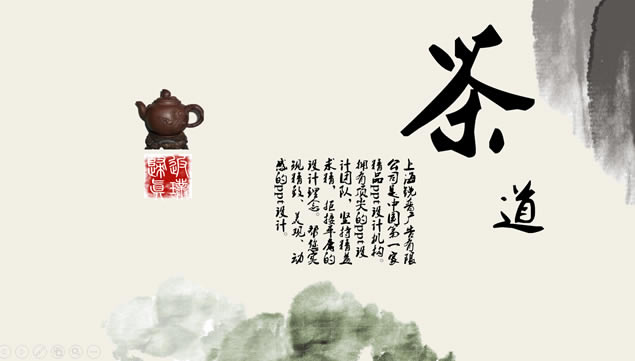 茶
道
上海锐普广告有限
公司是中国第一家
精品ppt设计机构。
拥有顶尖的ppt设
计团队，坚持精益
求精，拒绝平庸的
设计理念。帮您实
现精致、美观、动
感的ppt设计。
返璞
歸真